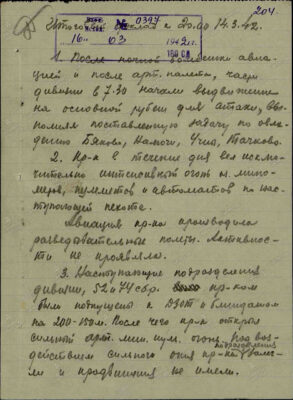 204
Итого доклад к 20.00 14.3.42.
№ 0397
16 03 1942 г.
1. После ночной бомбежки авиа-
цией и после арт. налета, части
дивизии в 7.30 начали выдвижение
на основной рубеж для атаки, вы-
полняя поставленную задачу по овла-
дению Бяково, Намочи, Учно, Тачково.
2. Пр-к в течение дня вел исклю-
чительно интенсивный огонь из мино-
метов, пулеметов и автоматов по нас-
тупающей пехоте.
Авиация пр-ка производила
разведывательные полеты. Активнос-
ти не проявляла.
3. Наступающие подразделения
дивизии, 52 и 74 сбр. пр-ком
были подпущены к ДЗОТ и блиндажам
на 200-150 м. После чего пр-к открыл
сильный арт. мин. пул. огонь. Под воз-
действием сильного огня пр-ка подразделения залег-
ли и продвижения не имели.